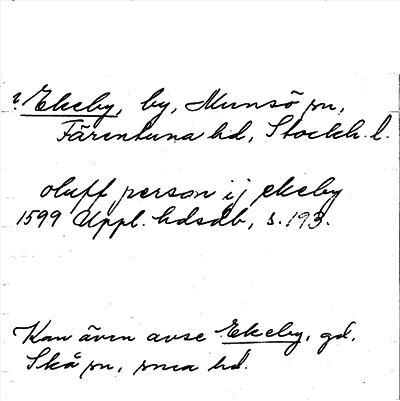 ? Ekeby, by, Munsö sn,
Färentuna hd, Stockh. l.
oluff person ij ekeby
1599 Uppl. hdsdb, s. 193.
Kan även avse Ekeby, gd,
Skå sn, sma hd.